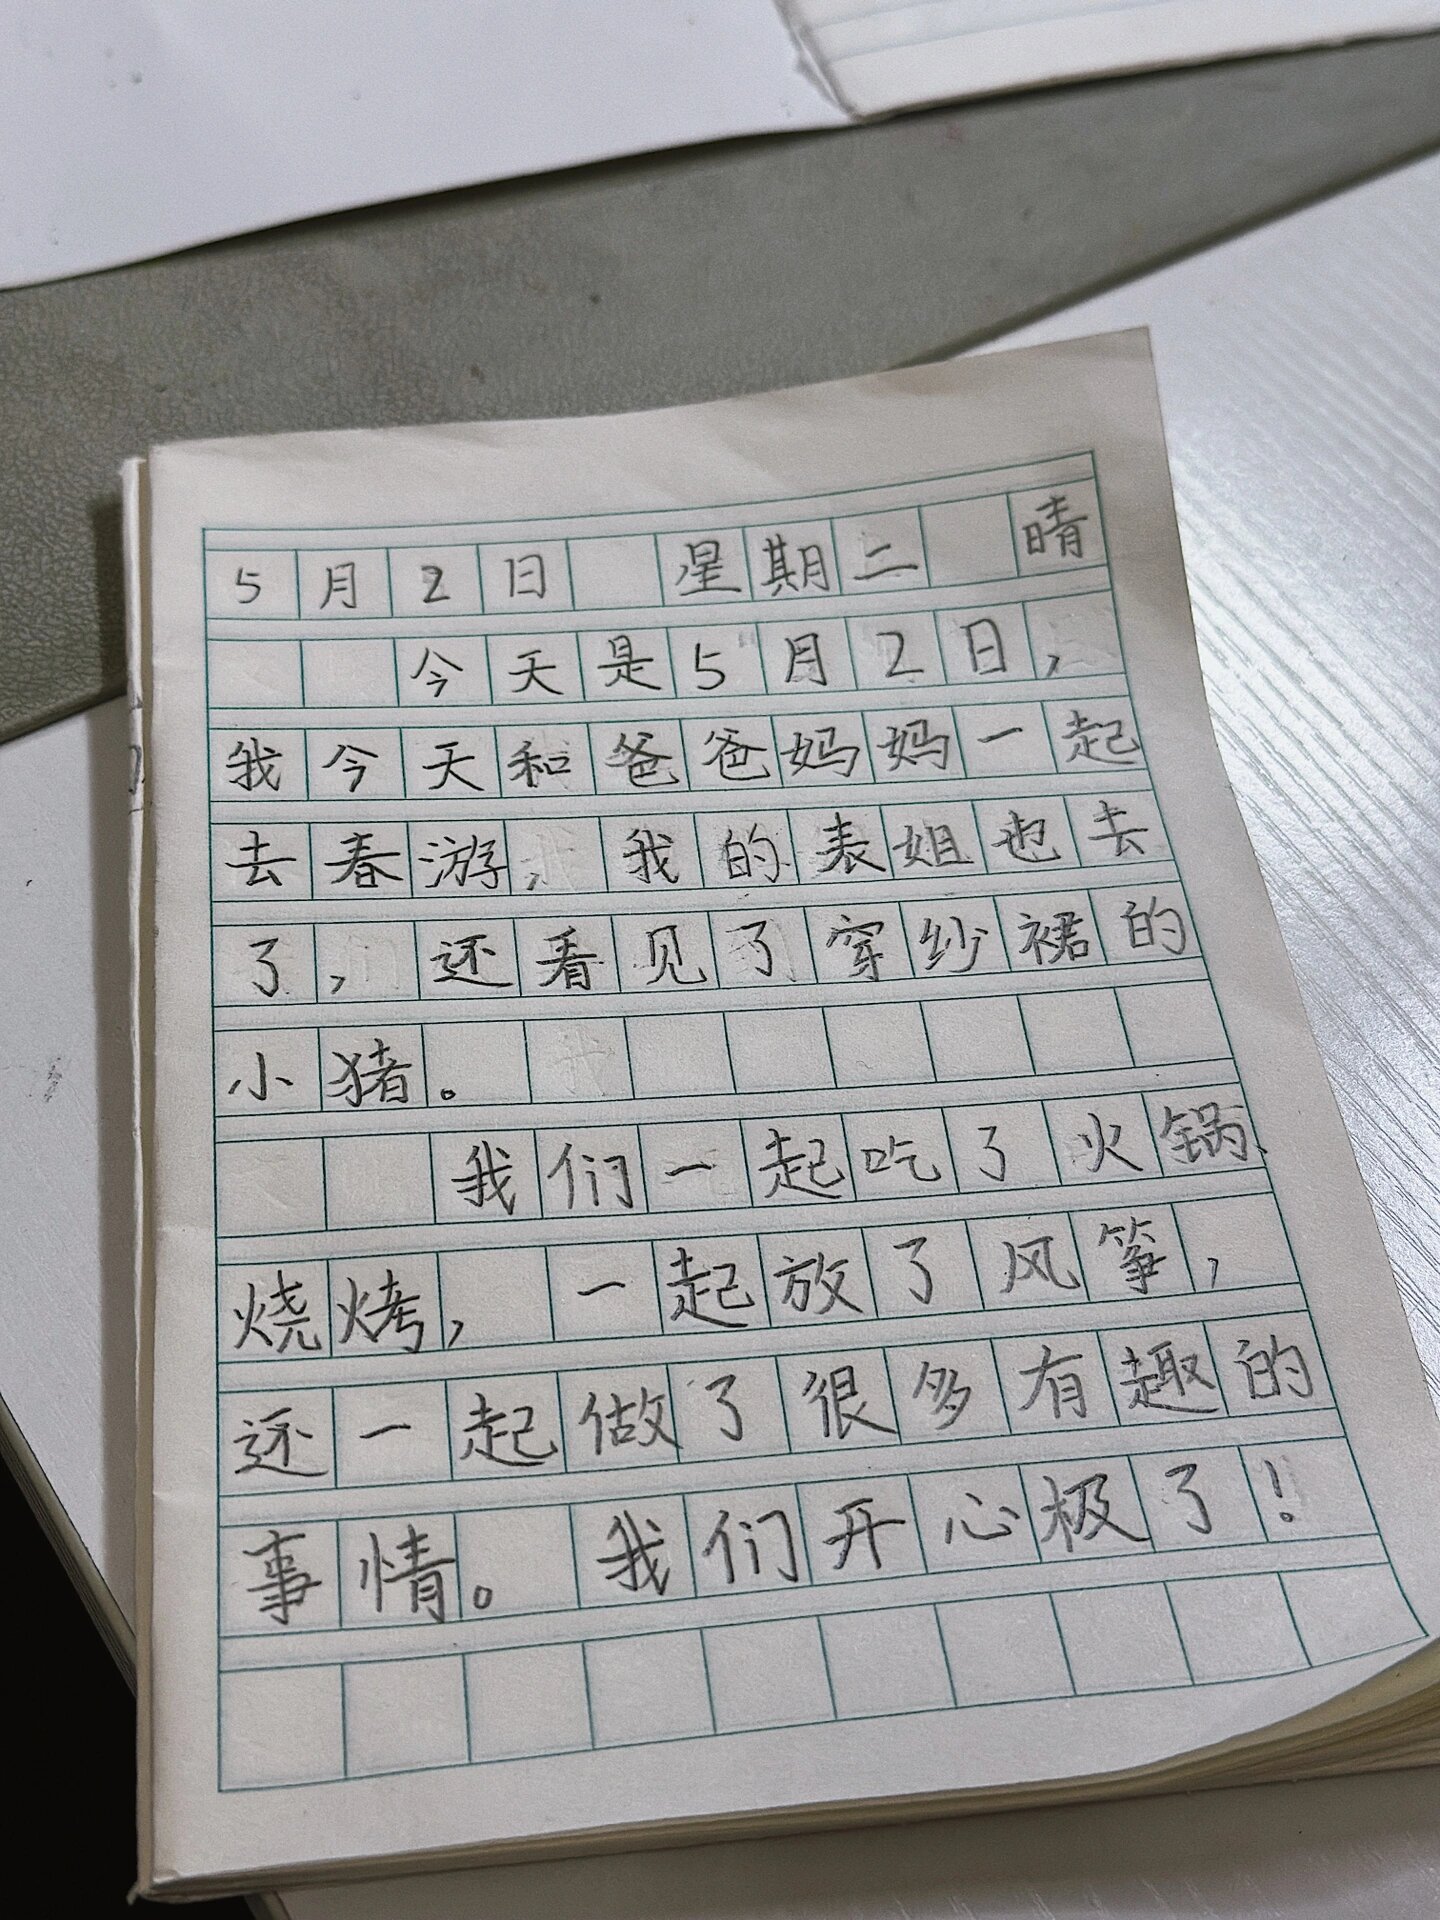 5月2日 星期二 晴
今天是5月2日，
我今天和爸爸妈妈一起
去春游，我的表姐也去
了，还看见了穿纱裙的
小猪。
我们一起吃了火锅、
烧烤，一起放了风筝，
还一起做了很多有趣的
事情。我们开心极了！